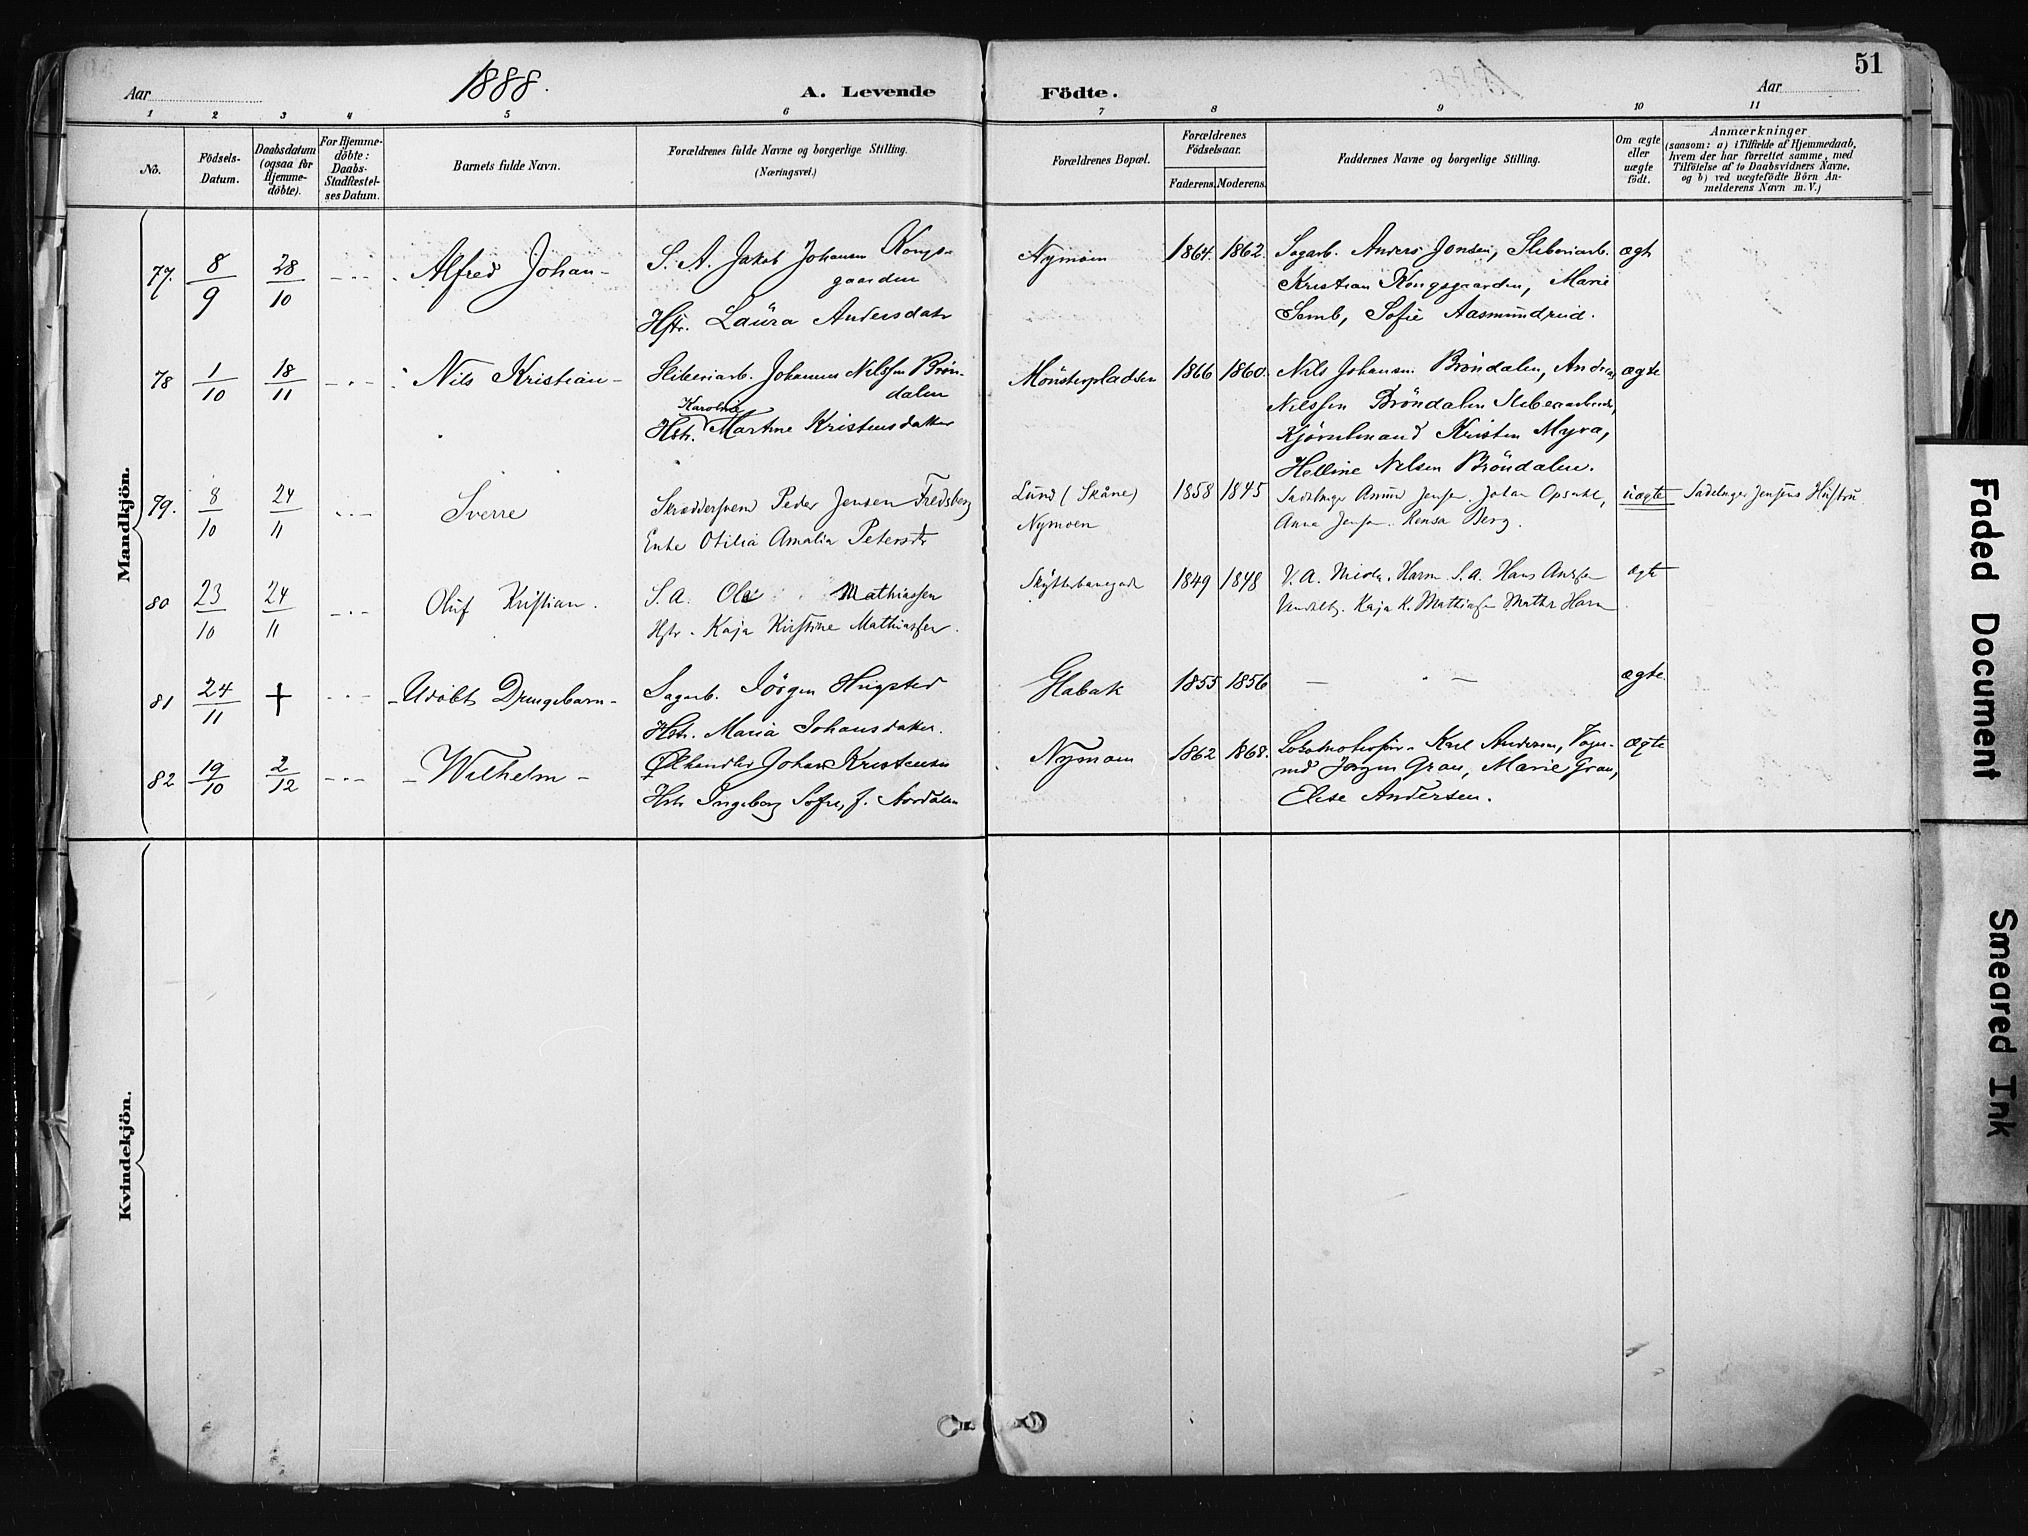 51
Aar 1888. A. Levende Födte. Aar
1 2 3 4 5 6 7 8 9 10 11
No.
Födsels-Datum.
Daabsdatum (ogsaa for Hjemme-döbte).
For Hjemme-döbte: Daabs-Stadfæstel-ses Datum.
Barnets fulde Navn.
Forældrenes fulde Navne og borgerlige Stilling.
(Næringsvei.)
Forældrenes Bopæl.
Forældrenes Födselsaar.
Faderens. Moderens.
Faddernes Navne og borgerlige Stilling.
Om ægte eller uægte födt.
Anmærkninger
(saasom: a) i Tilfælde af Hjemmedaab,
hvem der har forrettet samme, med
Tilföielse af to Daabsvidners Navne,
og b) ved uægtefödte Börn An-
melderens Navn m. V.)
Mandkjön.
77. 8/9 28/10 Alfred Johan
S. A. Jakob Johansen Kongs-
gaarden
Hstr. Laura Andersdatr
Nymoen 1864. 1862.
Sagarb. Anders Jonsen, Sliberiarb.
Kristian Kongsgaarden, Marie
Semb, Sofie Aasmundrud.
ægte
78 1/10 18/11 Nils Kristian
Sliberiarb. Johannes Nilssen Brön-
dalen
Karoline
Hstr. Martine Kristensdatter
Mönsterpladsen 1866 1860.
Nils Johansen Bröndalen, Andreas
Nilssen Bröndalen Sliberiarbeider,
Kristen Myra,
Helline Nilsen Bröndalen.
ægte
79. 8/10 24/11 Sverre
Skræddersvend Peder Jensen Fredsberg
Enke Otilia Amalia Petersdtr
Lund (Skåne)
Nymoen
1858 1845
Jensen. Johan Opsahl,
Anna Jensen. Berg.
uægte
Jensens Hustru
80 23/10 24/11 Oluf Kristian.
S. A. Ole Mathiassen
Hstr. Kaja Kirstine Mathiassen.
Skytterbanegad 1849 1848
S. A. Hans
Kaja K. Mathiasen
ægte
81 24/11 + Udöbt Drengebarn
Sagarb. Jörgen Hugsted
Hstr. Maria Johansdatter.
Glabak 1855 1856
ægte.
82 19/10 2/12 Wilhelm
Ölhandler Johan Kristensen
Hstr Ingeborg Sofie, f. Nordalen
Nymoen 1862 1868.
Lokomotivför. Karl Andersen, Vogn-
md Jörgen Gran, Marie Gran,
Elise Andersen.
ægte
Kvindekjön.
Faded Document
Smeared Ink